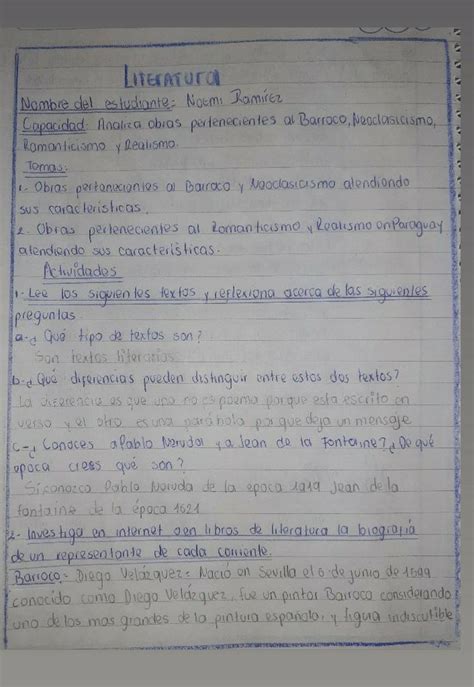 LITERATURA
Nombre del estudiante: Noemi Ramírez
Capacidad: Analiza obras pertenecientes al Barroco, Neoclasicismo,
Romanticismo y Realismo.
Temas:
1- Obras pertenecientes al Barroco y Neoclasicismo atendiendo
sus características.
2- Obras pertenecientes al Romanticismo y Realismo en Paraguay
atendiendo sus características.
Actividades
1- Lee los siguientes textos y reflexiona acerca de las siguientes
preguntas.
a-¿ Qué tipo de textos son?
Son textos literarios
b-¿ Qué diferencias pueden distinguir entre estos dos textos?
La diferencia es que uno es poema porque esta escrito en
verso y el otro es una parábola porque deja un mensaje
c-¿ Conoces a Pablo Neruda y a Jean de la Fontaine? ¿De qué
epoca crees qué son?
Si conozco Pablo Neruda de la epoca 1919 Jean de la
fontaine de la época 1621
2- Investiga en internet o en libros de literatura la biografía
de un representante de cada corriente.
Barroco:- Diego Velázquez: Nació en Sevilla el 6 de junio de 1599
conocido como Diego Velázquez, fue un pintor Barroco considerando
uno de los mas grandes de la pintura española, y figura indiscutible